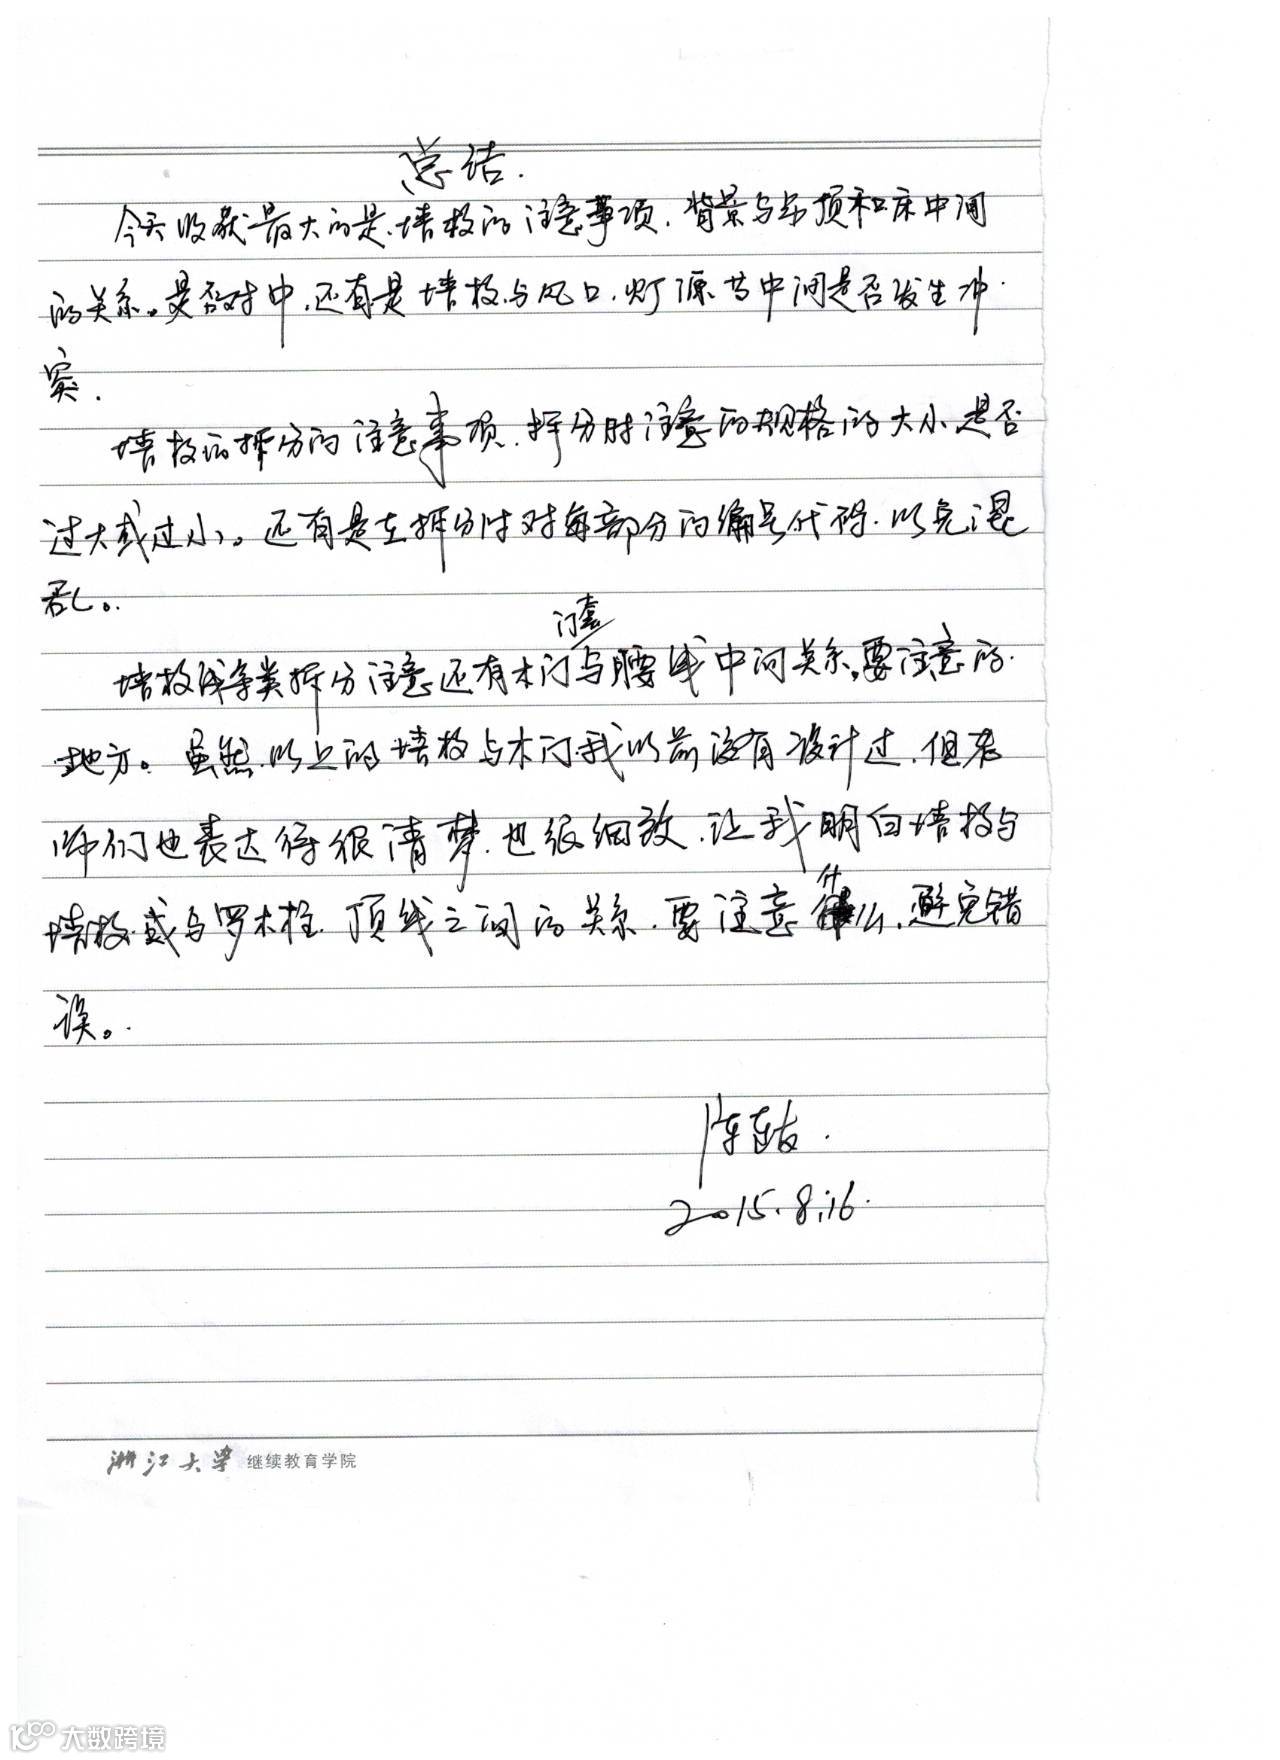 总结.
今天收获最大的是.墙板的注意事项.背景与吊顶和床中间
的关系。是否对中.还有是墙板与风口.灯源等中间是否发生冲.
突.
墙板的拆分的注意事项.拆分时注意的规格的大小是否
过大或过小。还有是在拆分时对每部分的编号代码.以免混
乱。.
门套
墙板线条类拆分注意还有木门与腰线中间关系。要注意的.
地方。虽然.以上的墙板与木门我以前没有设计过.但老
师们也表达得很清楚.也很细致.让我明白墙板与
什
墙板.或与罗木柱.顶线之间的关系.要注意么.避免错
误。.
陈
2015.8.16.
浙江大学 继续教育学院
大数跨境